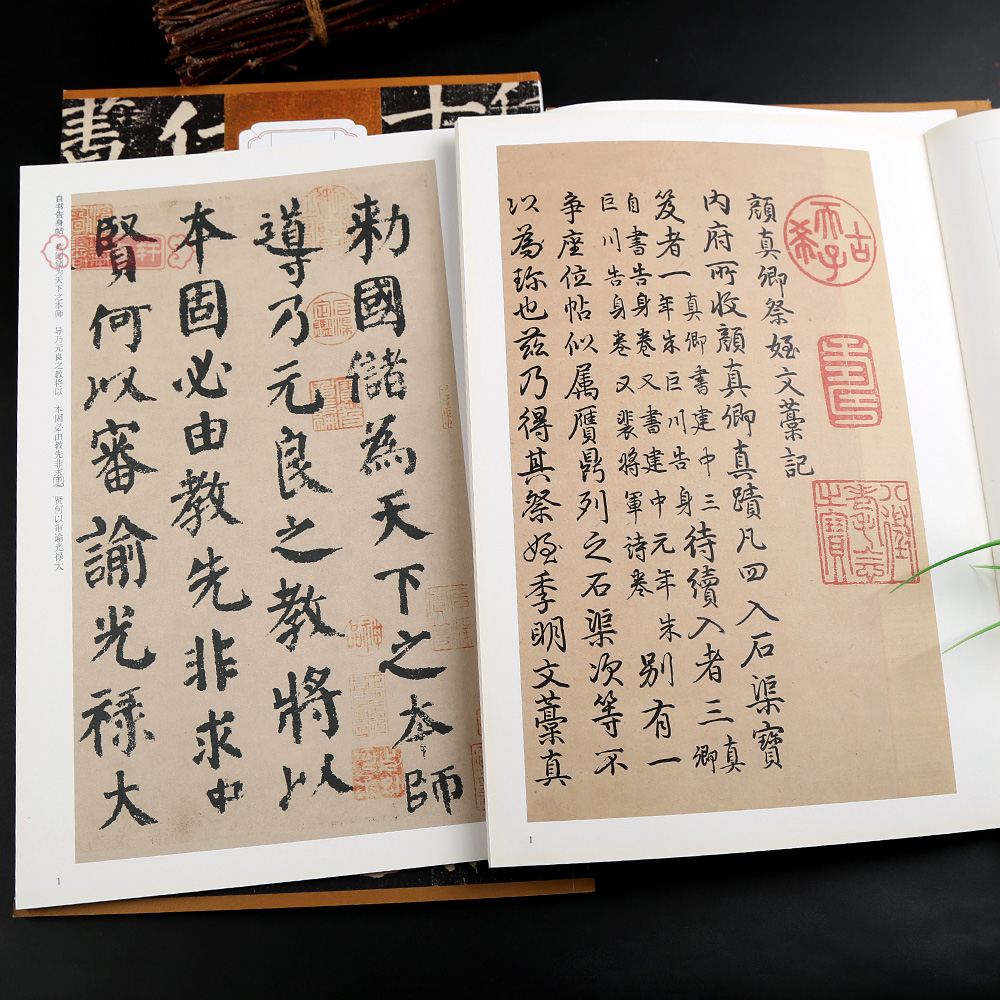 自书告身帖 敕国储为天下之本师 导乃元良之教将以 本固必由教先非求中 贤何以审谕光禄大
勑國儲為天下之本師
導乃元良之教將以
本固必由教先非求中
賢何以審諭光祿大
神品
1
古希天子
壽
八徵耄念之寶
顏真卿祭姪文藁記
內府所收顏真卿真蹟凡四入石渠寶
笈者一真卿書建中三年朱巨川告身待續入者三真卿
自書告身卷又書建中元年朱巨川告身卷又裴將軍詩卷別有一
爭座位帖似属贋鼎列之石渠次等不
以為珍也茲乃得其祭姪季明文藁真
1
書